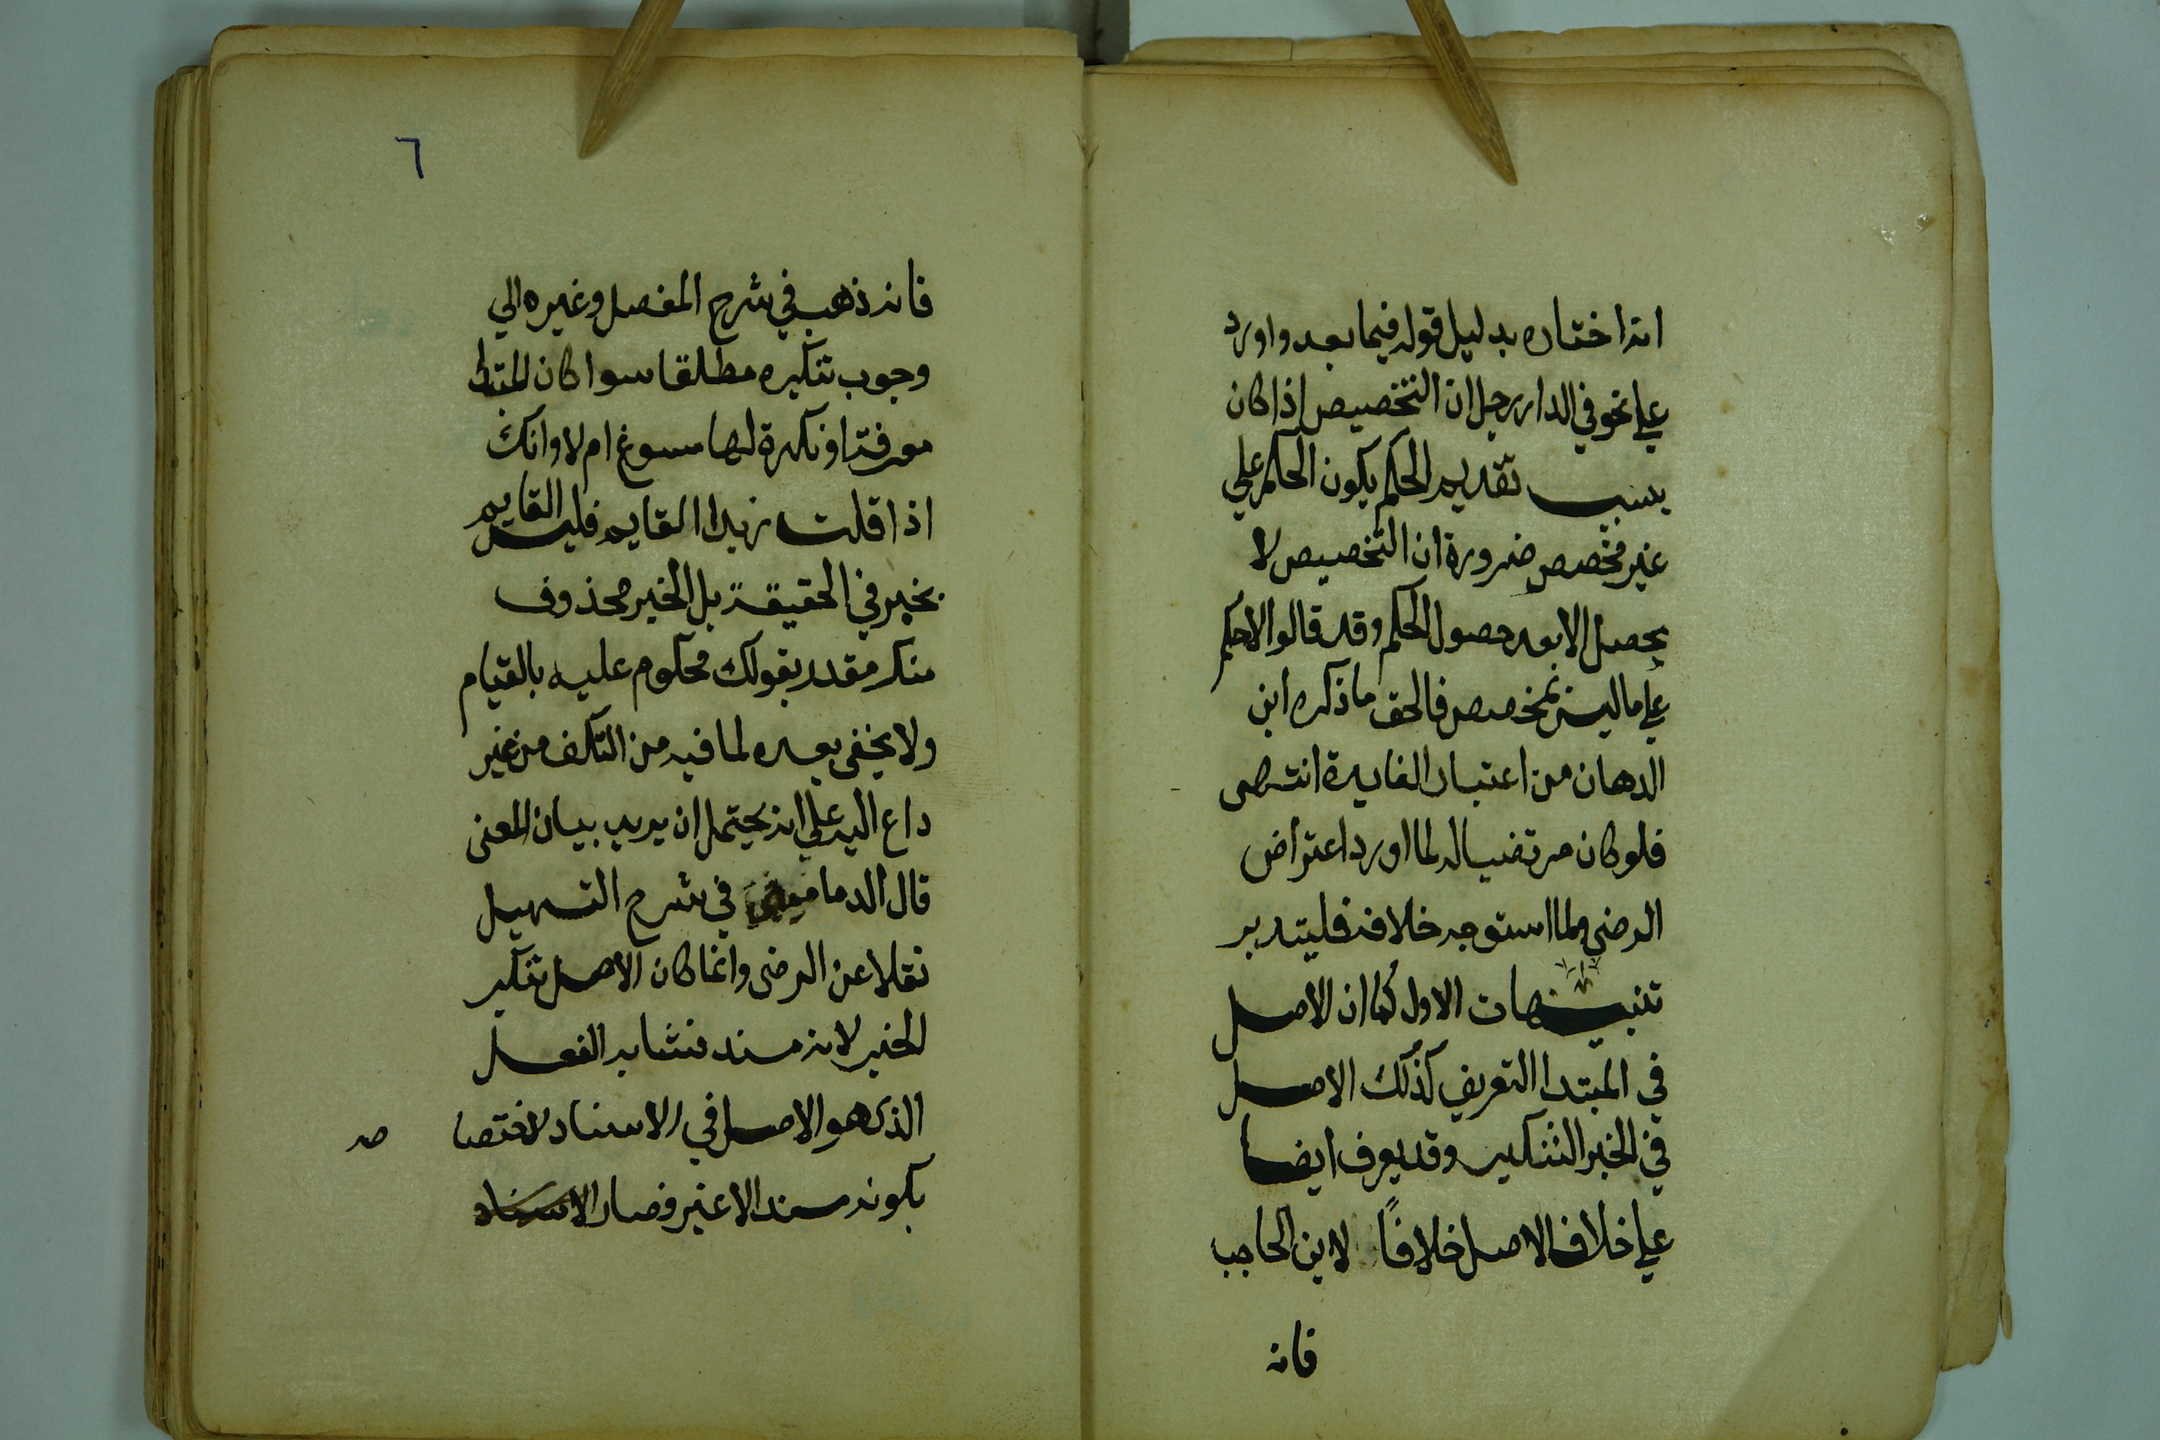 انه اختاره بدليل قوله فيما بعد واورد
علي نحو في الدار رجل ان التخصيص اذا كان
بسبب تقديم الحكم يكون الحكم علي
غير مخصص ضرورة ان التخصيص لا
يحصل الا بعد حصول الحكم وقد قالوا لا حكم
علي ما ليس بمخصص فالحق ما ذكره ابن
الدهان من اعتبار الفايدة انتهى
فلو كان مرتضيا له لما اورد اعتراض
الرضى ولما استوجه خلافه فليتدبر
تنبيهات الاول كما ان الاصل
في المبتدا التعريف كذلك الاصل
في الخبر التنكير وقد يعرف ايضا
علي خلاف الاصل خلافًا لابن الحاجب
فانه
٦
فانه ذهب في شرح المفصل وغيره الي
وجوب تنكيره مطلقا سوا كان المبتدا
معرفة او نكرة لها مسوغ ام لا وانك
اذا قلت زيد القايم فليس القايم
بخبر في الحقيقة بل الخبر محذوف
منكر مقدر بقولك محكوم عليه بالقيام
ولا يخفى بعده لما فيه من التكلف من غير
داع اليه علي انه يحتمل ان يريد بيان المعنى
قال الدماميني في شرح التسهيل
نقلا عن الرضى وانما كان الاصل تنكير
الخبر لانه مسند فشابه الفعل
الذي هو الاصل في الاسناد لاختصا صه
بكونه مسندا لا غير وصار الاسناد